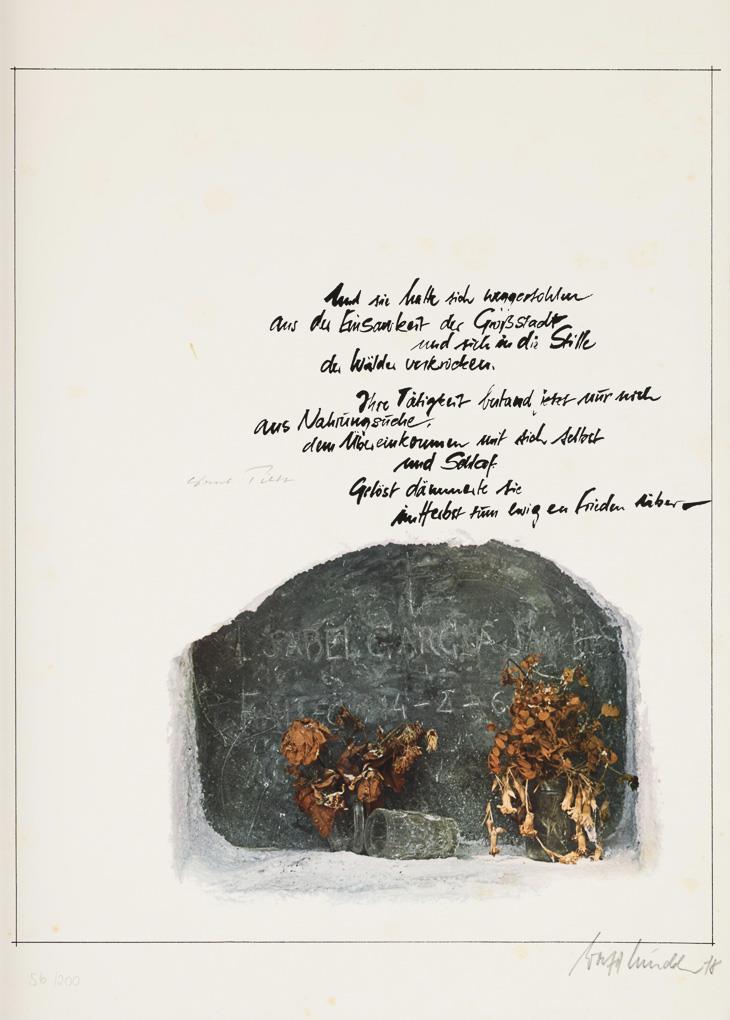 Und sie hatte sich weggestohlen
aus der Einsamkeit der Großstadt
und sich in die Stille
der Wälder verkrochen.
Ihre Tätigkeit bestand jetzt nur noch
aus Nahrungssuche,
dem Übereinkommen mit sich selbst
und Schlaf.
Gelöst dämmerte sie
im Herbst zum ewigen Frieden hinüber
ISABEL GARCIA
4-2-6
56/200
78